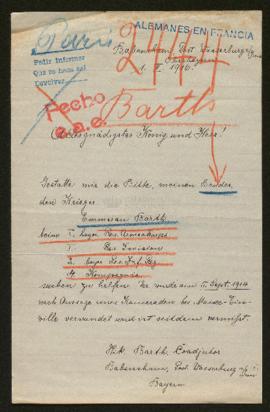 Paris
ALEMANES EN FRANCIA
Babensham, Post Wasserburg a/Inn
Oberbayern
1. V. 1916.
Pedir informes
Que se haga así
Devolver
244
Pecho
e.a.e.
Barth
Allergnädigster König und Herr!
Gestatte mir die Bitte, meinen Bruder,
den Krieger
Emmeran Barth
beim I. bayr. Res. Armeekorps
I. Res. Division
2. bayr. Res. Inf. Reg.
4. Kompagnie
suchen zu helfen. Er wurde am 1. Sept. 1914
nach Aussage eines Kameraden bei
ville verwundet und ist seitdem vermisst.
Hch. Barth, Coadjutor
Babensham, Post Wasserburg a/Inn
Bayern